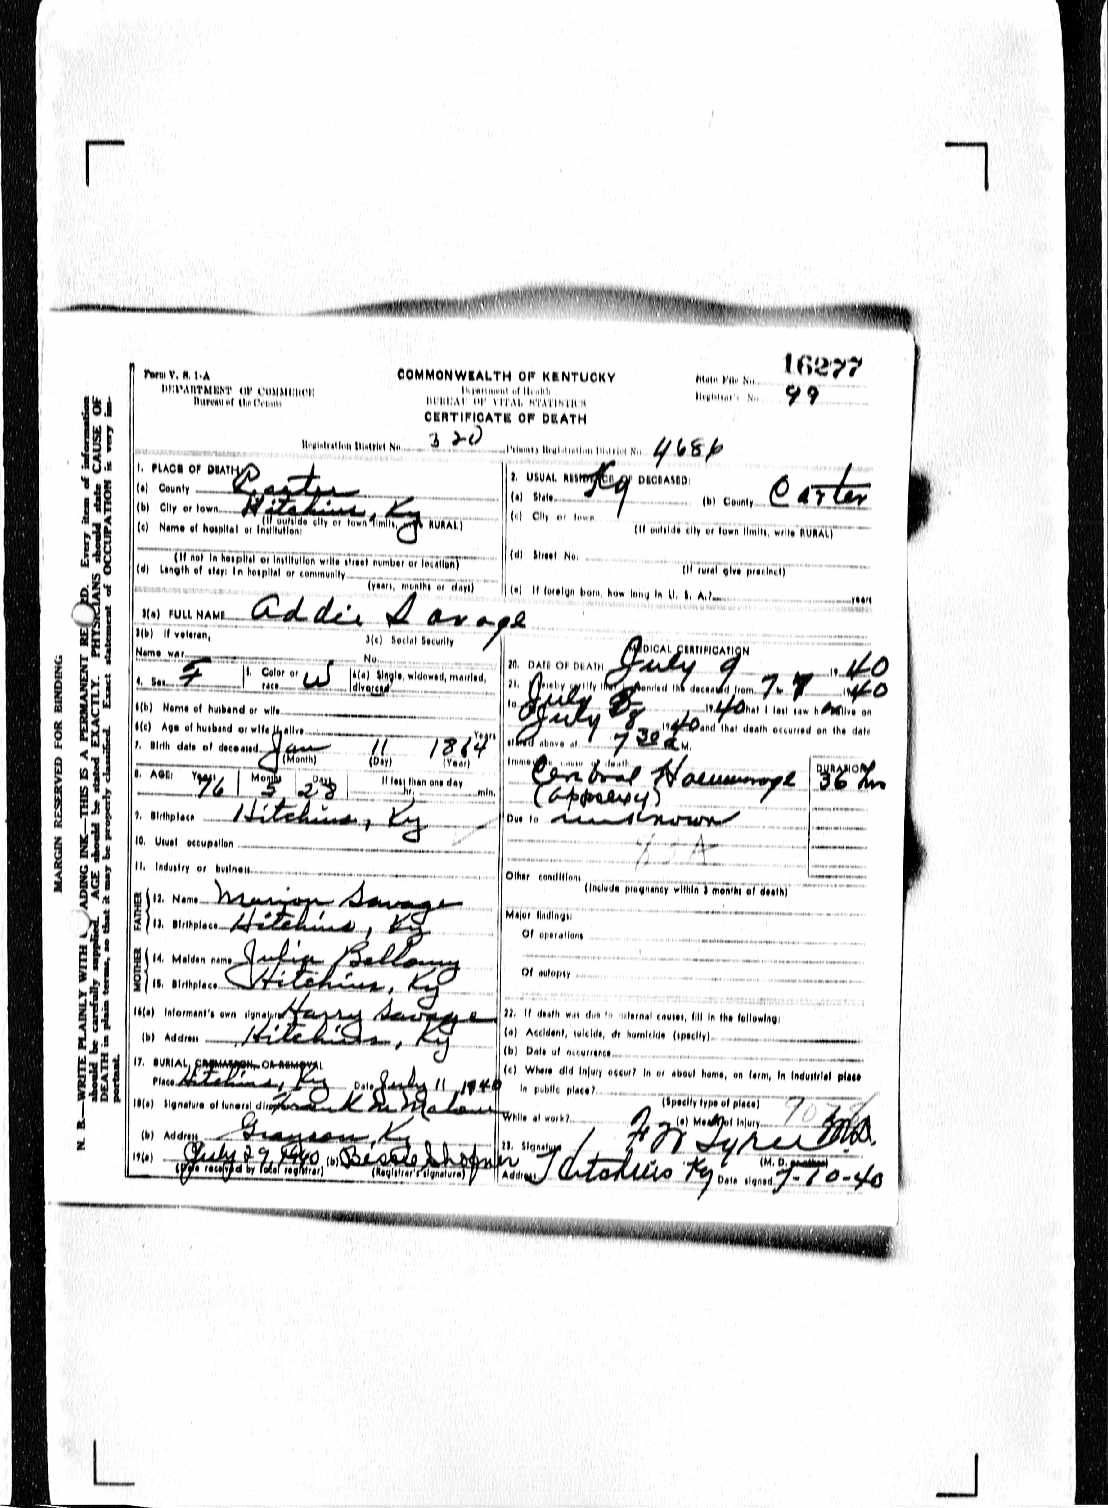 16277
Form V. S. 1-A
COMMONWEALTH OF KENTUCKY
State File No.
DEPARTMENT OF COMMERCE
Department of Health
Registrar's No. 99
Bureau of the Census
BUREAU OF VITAL STATISTICS
CERTIFICATE OF DEATH
Registration District No. 320
Primary Registration District No. 4686
MARGIN RESERVED FOR BINDING
N. B.—WRITE PLAINLY WITH ADING INK—THIS IS A PERMANENT RE D. Every item of information
should be carefully supplied. AGE should be stated EXACTLY. PHYSICIANS should state CAUSE OF
DEATH in plain terms, so that it may be properly classified. Exact statement of OCCUPATION is very im-
portant.
1. PLACE OF DEATH
(a) County Carter
(b) City or town Hitchins, Ky
(If outside city or town limits, RURAL)
(c) Name of hospital or institution:
(If not in hospital or institution write street number or location)
(d) Length of stay: In hospital or community
(years, months or days)
2. USUAL RESIDENCE OF DECEASED:
(a) State Ky (b) County Carter
(c) City or town
(If outside city or town limits, write RURAL)
(d) Street No.
(If rural give precinct)
(e) If foreign born, how long in U. S. A.? years
3(a) FULL NAME Addie Savage
3(b) If veteran,
Name war
3(c) Social Security
No.
4. Sex F
5. Color or
race W
6(a) Single, widowed, married,
divorced
6(b) Name of husband or wife
6(c) Age of husband or wife if alive Years
7. Birth date of deceased Jan 11 1864
(Month) (Day) (Year)
8. AGE: Years 76 Months 5 Days 28 If less than one day
hr. min.
9. Birthplace Hitchins, Ky
10. Usual occupation
11. Industry or business
FATHER
12. Name Marion Savage
13. Birthplace Hitchins, Ky
MOTHER
14. Maiden name Julia Bellomy
15. Birthplace Hitchins, Ky
16(a) Informant's own signature Harry Savage
(b) Address Hitchins, Ky
17. BURIAL, CREMATION, OR REMOVAL
Place Hitchins, Ky Date July 11 1940
18(a) Signature of funeral director Frank
(b) Address Grayson, Ky
19(a) July 29, 1940 (b) Bessie
(Date received by local registrar) (Registrar's signature)
MEDICAL CERTIFICATION
20. DATE OF DEATH July 9 1940
21. I hereby certify that I attended the deceased from 7-7 1940
to July 8 1940 that I last saw h alive on
July 8 1940 and that death occurred on the date
stated above at 7 30 a M.
Immediate cause of death
DURATION
Cerebral Haemmorage 36 hrs
(apoplexy)
Due to unknown
Other conditions
(Include pregnancy within 3 months of death)
Major findings:
Of operations
Of autopsy
22. If death was due to external causes, fill in the following:
(a) Accident, suicide, or homicide (specify)
(b) Date of occurrence
(c) Where did injury occur? In or about home, on farm, in industrial place
in public place?
(Specify type of place)
While at work? (e) Means of injury
23. Signature M.D.
(M. D.
Address Hitchins Ky Date signed 7-10-40